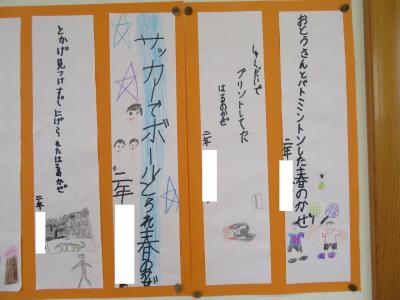 おとうさんとバトミントンした春のかぜ
二年
しゅくだいで
プリントしてた
はるのかぜ
二年
サッカーでボールとられ春のかぜ
二年
とかげ見つけすぐにげられたはるのかぜ
二年